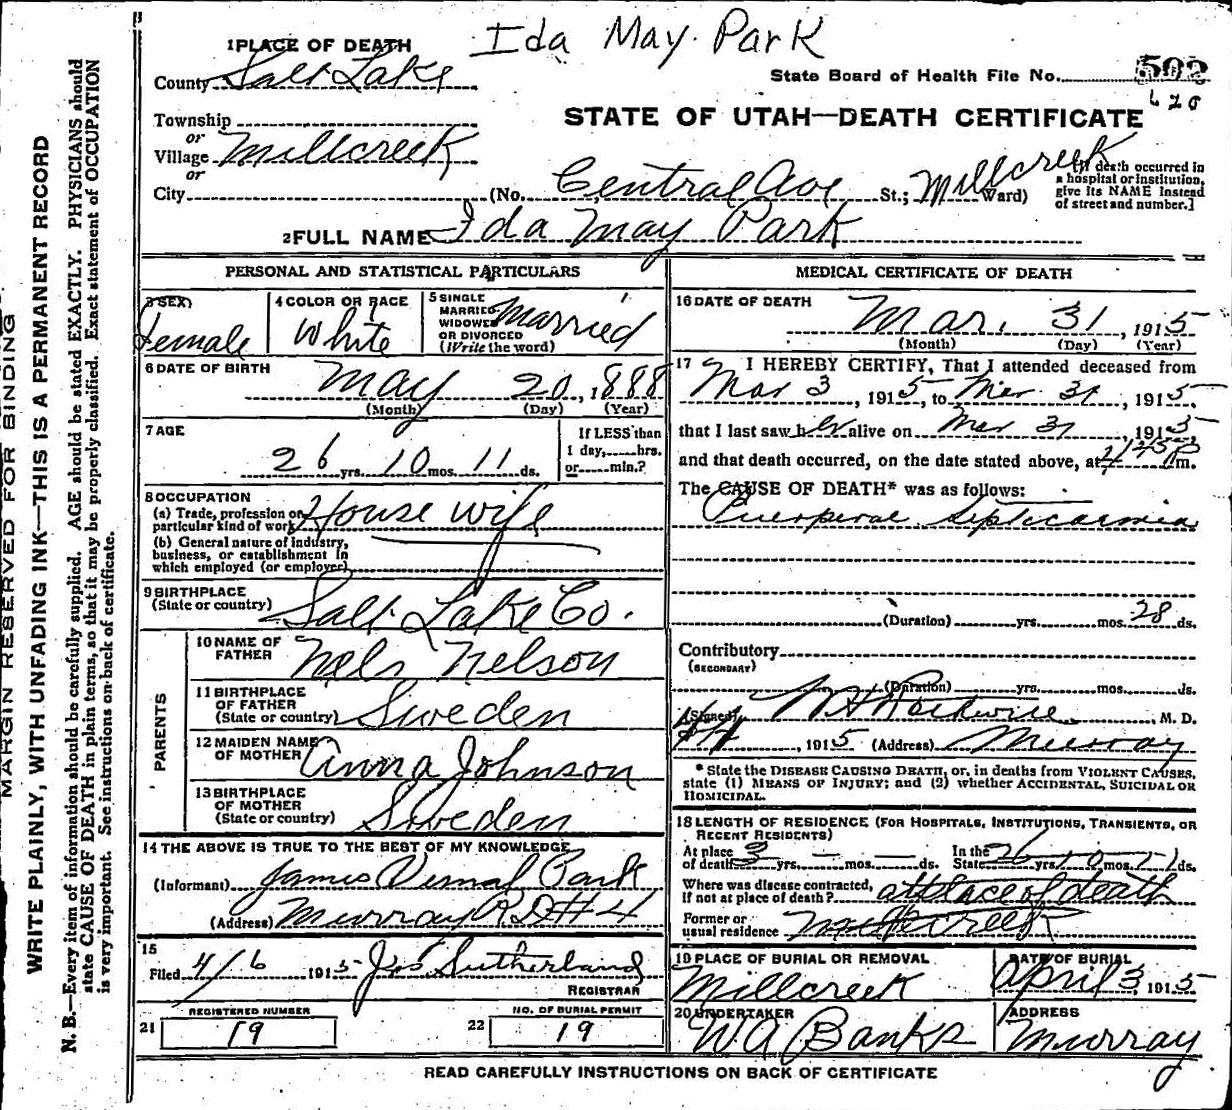 Ida May Park
1 PLACE OF DEATH
County Salt Lake
State Board of Health File No. 502
620
STATE OF UTAH—DEATH CERTIFICATE
Township
or
Village Millcreek
or
City (No. Central Ave St.; Millcreek Ward)
[If death occurred in
a hospital or institution,
give its NAME instead
of street and number.]
2 FULL NAME Ida May Park
PERSONAL AND STATISTICAL PARTICULARS
3 SEX
Female
4 COLOR OR RACE
White
5 SINGLE
MARRIED
WIDOWED
OR DIVORCED
(Write the word)
Married
6 DATE OF BIRTH
May 20, 1888
(Month) (Day) (Year)
7 AGE
26 yrs. 10 mos. 11 ds.
If LESS than
1 day, hrs.
or min.?
8 OCCUPATION
(a) Trade, profession or
particular kind of work House wife
(b) General nature of industry,
business, or establishment in
which employed (or employer)
9 BIRTHPLACE
(State or country) Salt Lake Co.
PARENTS
10 NAME OF
FATHER Nels Nelson
11 BIRTHPLACE
OF FATHER
(State or country) Sweden
12 MAIDEN NAME
OF MOTHER Anna Johnson
13 BIRTHPLACE
OF MOTHER
(State or country) Sweden
14 THE ABOVE IS TRUE TO THE BEST OF MY KNOWLEDGE
(Informant) James Park
(Address) Murray R D # 4
15
Filed 4/6 1915 Jas Sutherland
REGISTRAR
21 REGISTERED NUMBER
19
22 NO. OF BURIAL PERMIT
19
MEDICAL CERTIFICATE OF DEATH
16 DATE OF DEATH
Mar. 31, 1915
(Month) (Day) (Year)
17 I HEREBY CERTIFY, That I attended deceased from
Mar 3, 1915, to Mar 31, 1915,
that I last saw her alive on Mar 31, 1915
and that death occurred, on the date stated above, at 4:45 P m.
The CAUSE OF DEATH* was as follows:
Puerperal Septicaemia
(Duration) yrs. mos. 28 ds.
Contributory
(SECONDARY)
(Duration) yrs. mos. ds.
(Signed) M. D.
1915 (Address) Murray
* State the DISEASE CAUSING DEATH, or, in deaths from VIOLENT CAUSES,
state (1) MEANS OF INJURY; and (2) whether ACCIDENTAL, SUICIDAL OR
HOMICIDAL.
18 LENGTH OF RESIDENCE (FOR HOSPITALS, INSTITUTIONS, TRANSIENTS, OR
RECENT RESIDENTS)
At place
of death 3 yrs. — mos. — ds.
In the
State 26 yrs. 10 mos. 11 ds.
Where was disease contracted,
if not at place of death? at place of death
Former or
usual residence
19 PLACE OF BURIAL OR REMOVAL
Millcreek
DATE OF BURIAL
April 3, 1915
20 UNDERTAKER
W A Banks
ADDRESS
Murray
READ CAREFULLY INSTRUCTIONS ON BACK OF CERTIFICATE
MARGIN RESERVED FOR BINDING
WRITE PLAINLY, WITH UNFADING INK—THIS IS A PERMANENT RECORD
N. B.—Every item of information should be carefully supplied. AGE should be stated EXACTLY. PHYSICIANS should
state CAUSE OF DEATH in plain terms, so that it may be properly classified. Exact statement of OCCUPATION
is very important. See instructions on back of certificate.